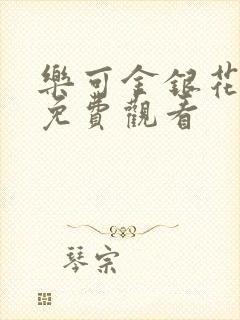 樂可金銀花
免費觀看
琴宗